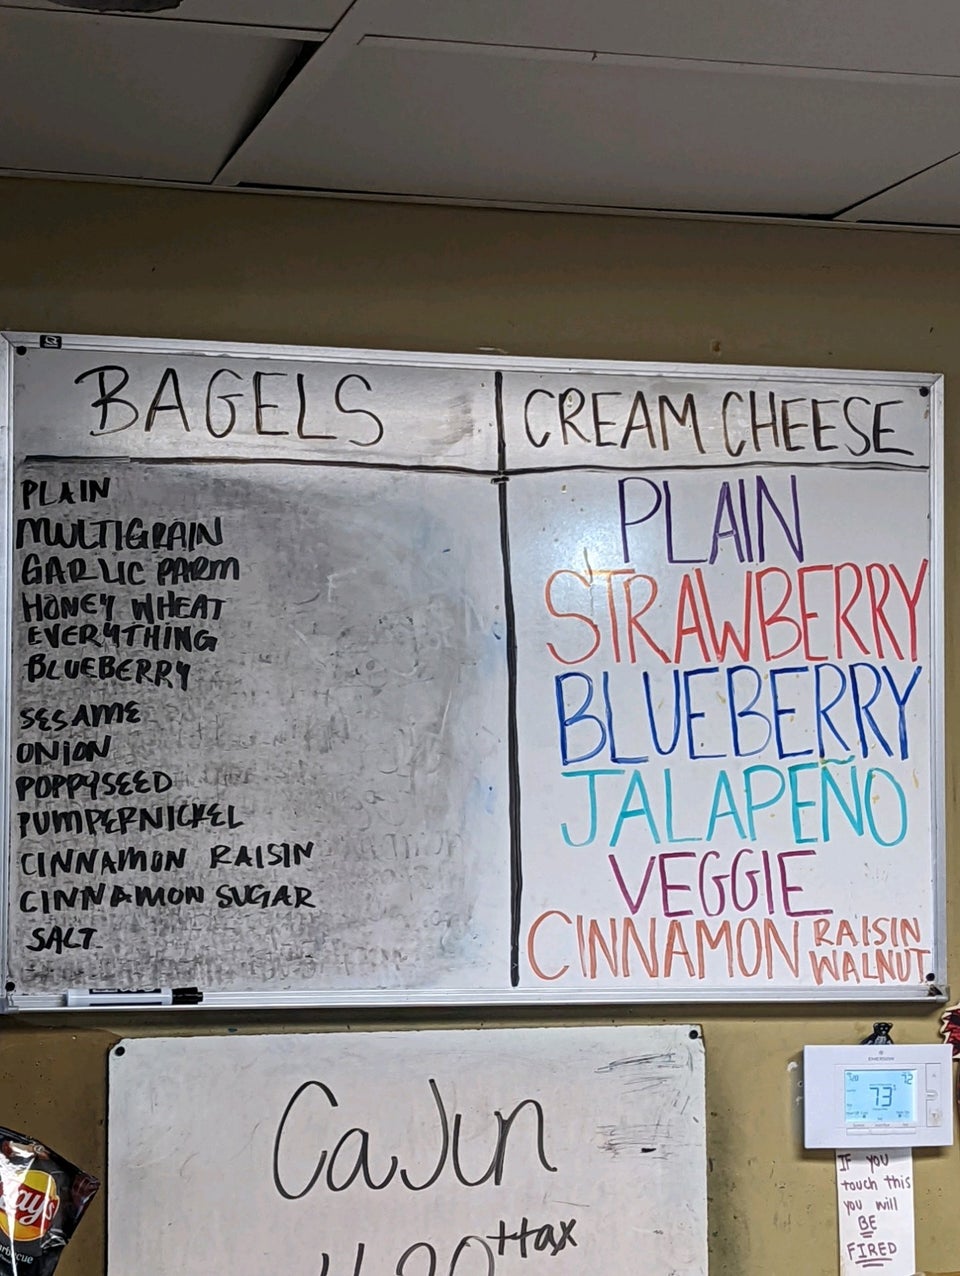 BAGELS
PLAIN
MULTIGRAIN
GARLIC PARM
HONEY WHEAT
EVERYTHING
BLUEBERRY
SESAME
ONION
POPPYSEED
PUMPERNICKEL
CINNAMON RAISIN
CINNAMON SUGAR
SALT
CREAM CHEESE
PLAIN
STRAWBERRY
BLUEBERRY
JALAPEÑO
VEGGIE
CINNAMON RAISIN
WALNUT
Cajun
+tax
EMERSON
72
73
IF you
touch this
you will
BE
FIRED
Lay's